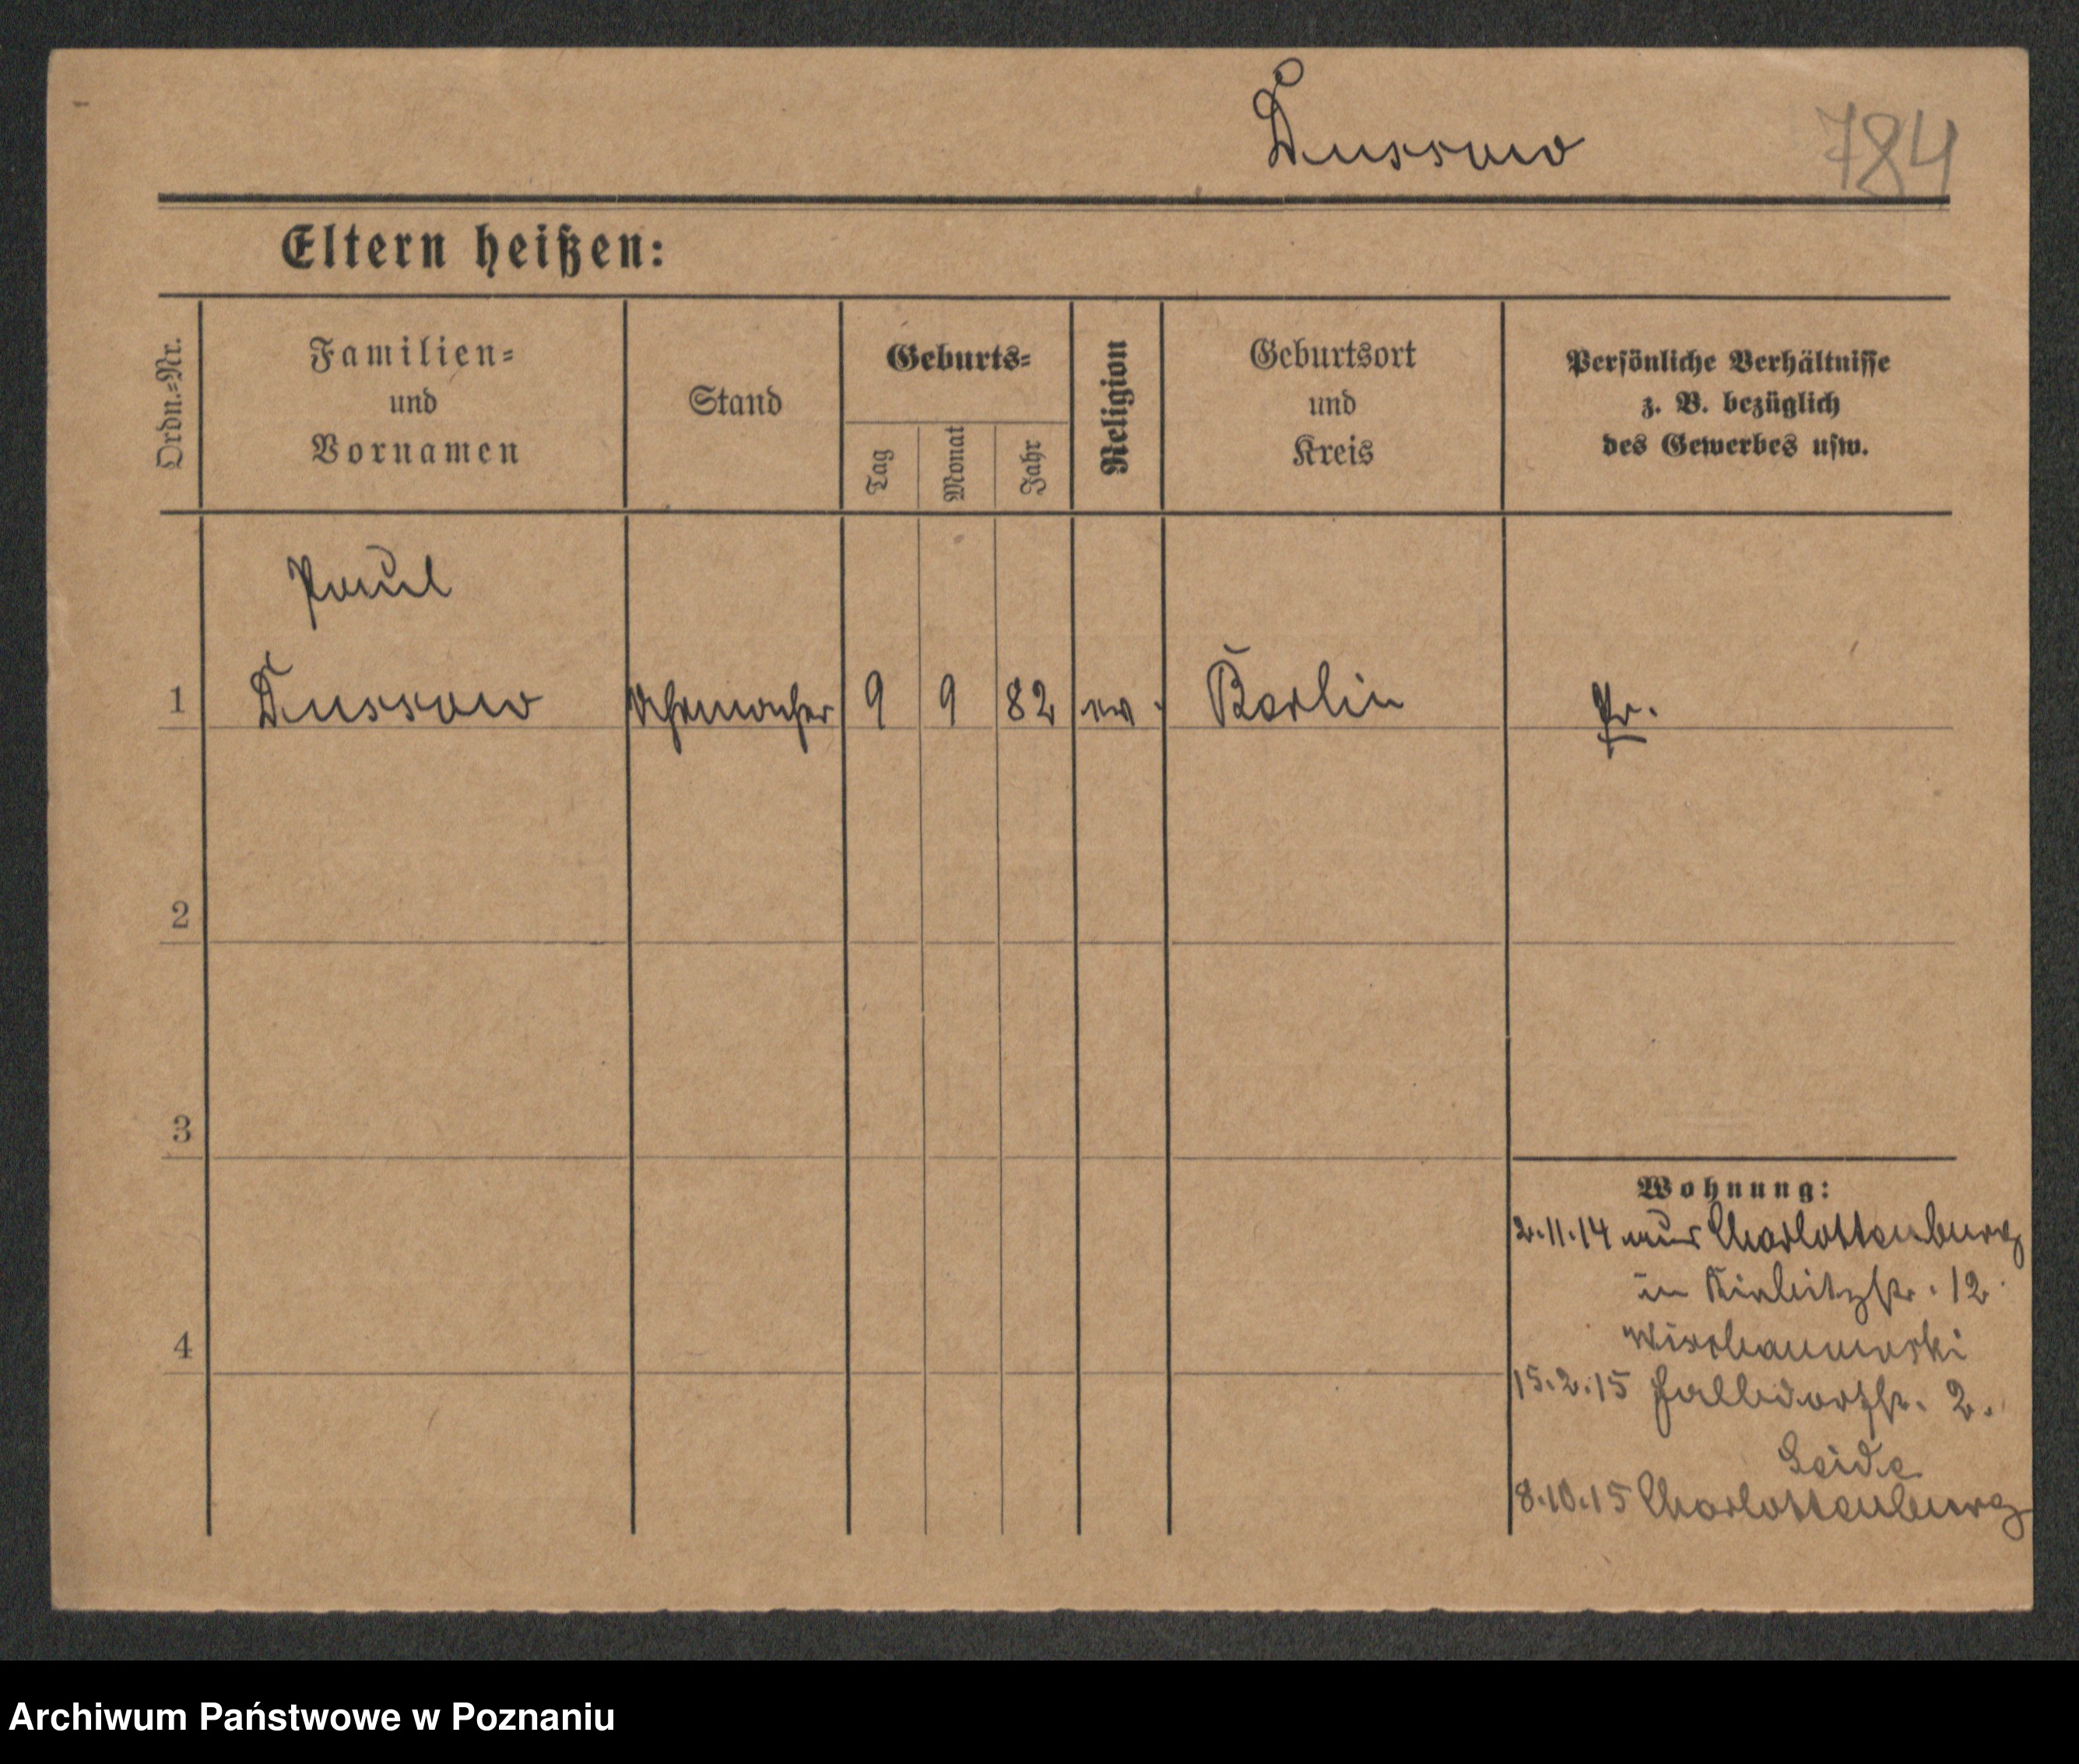 Dussow
784
Eltern heißen:
Ordn.-Nr.
Familien-
und
Vornamen
Stand
Geburts-
Tag
Monat
Jahr
Religion
Geburtsort
und
Kreis
Persönliche Verhältnisse
z. B. bezüglich
des Gewerbes usw.
Paul
1 Dussow Uhrmacher 9 9 82 ev. Berlin Pr.
2
3
Wohnung:
2.11.14 aus Charlottenburg
in 12
4
15.2.15 2.
Seide
8.10.15 Charlottenburg
Archiwum Państwowe w Poznaniu